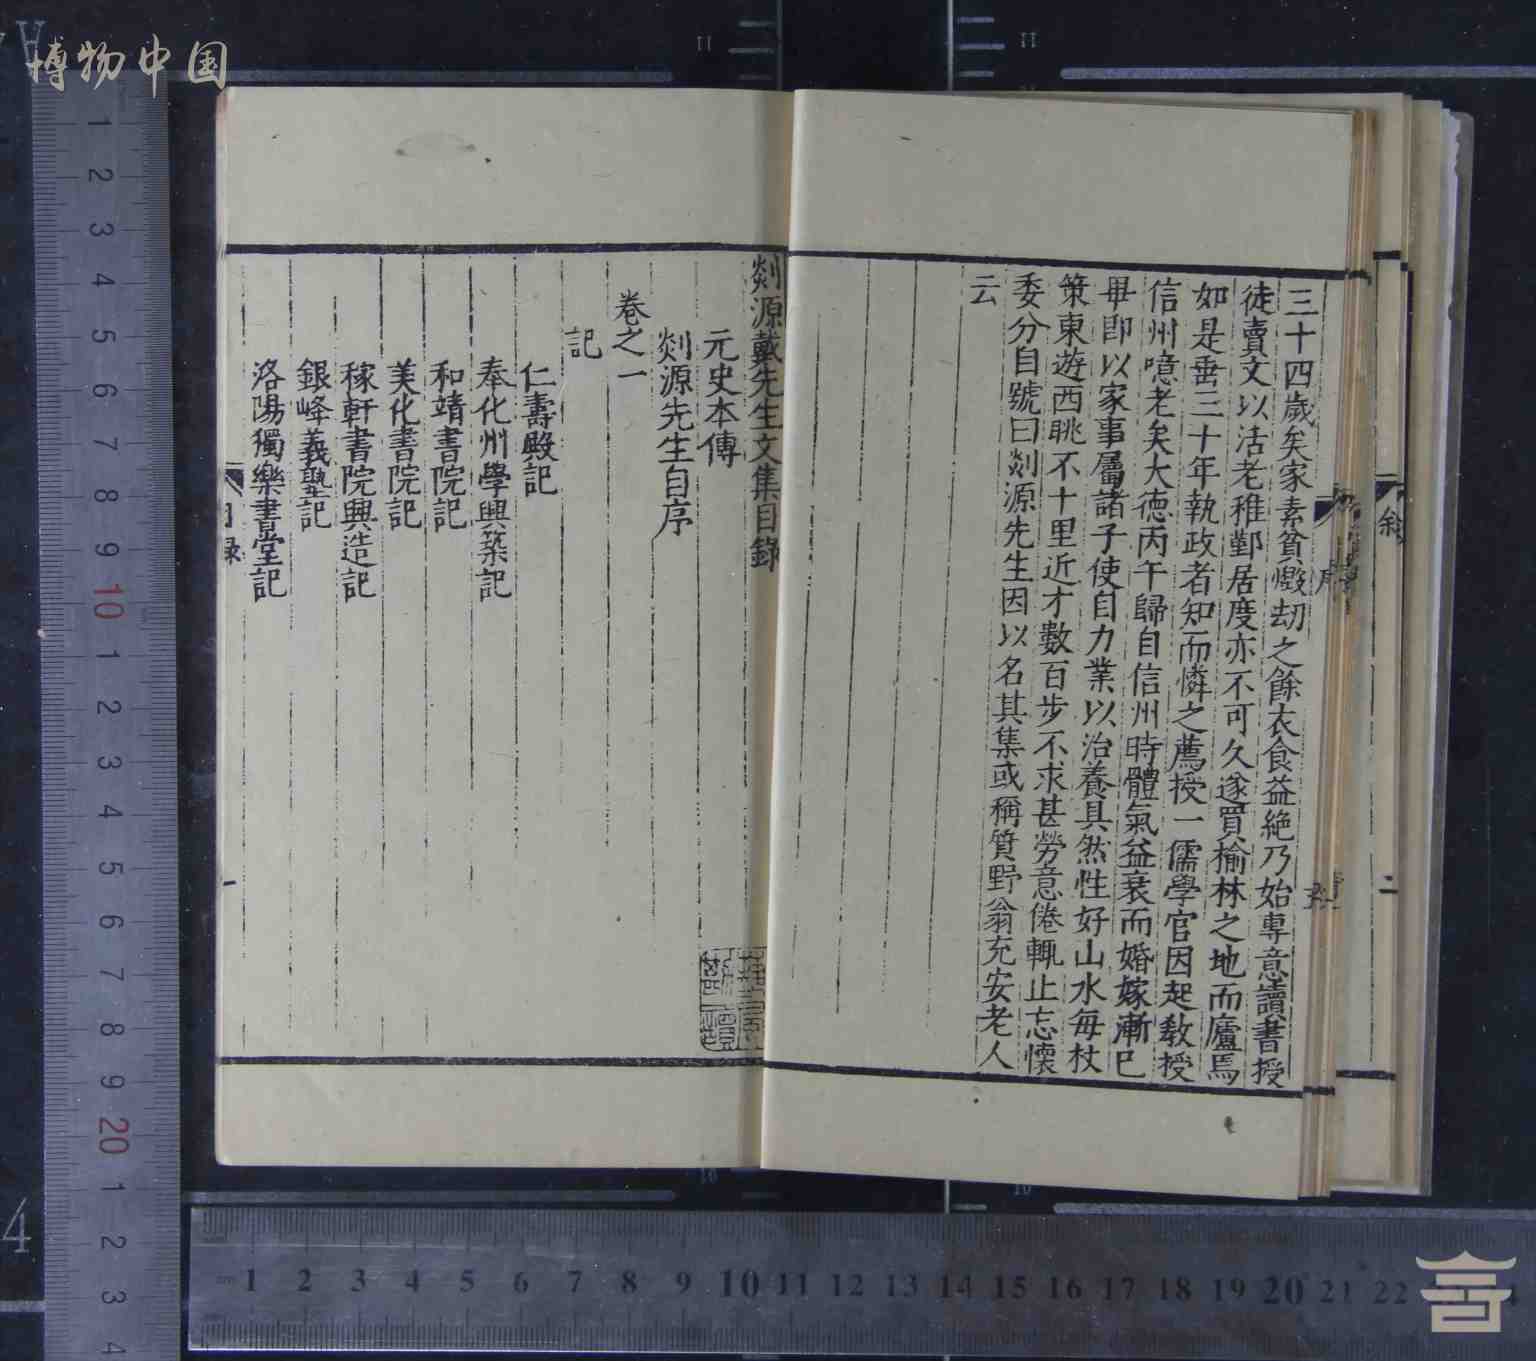 博物中国
三十四歲矣家素貧燬劫之餘衣食益絶乃始專意讀書授
徒賣文以活老稚鄞居度亦不可久遂買榆林之地而廬焉
如是垂三十年執政者知而憐之薦授一儒學官因起教授
信州噫老矣大德丙午歸自信州時體氣益衰而婚嫁漸已
畢即以家事屬諸子使自力業以治養具然性好山水每杖
策東遊西眺不十里近才數百步不求甚勞意倦輒止忘懷
委分自號曰剡源先生因以名其集或稱質野翁充安老人
云
剡源戴先生文集目錄
元史本傳
剡源先生自序
卷之一
記
仁壽殿記
奉化州學興築記
和靖書院記
美化書院記
稼軒書院興造記
銀峰義塾記
洛陽獨樂書堂記
目録
一
序
二
1 2 3 4 5 6 7 8 9 10 1 2 3 4 5 6 7 8 9 20 1 2 3 4
1 2 3 4 5 6 7 8 9 10 11 12 13 14 15 16 17 18 19 20 21 22